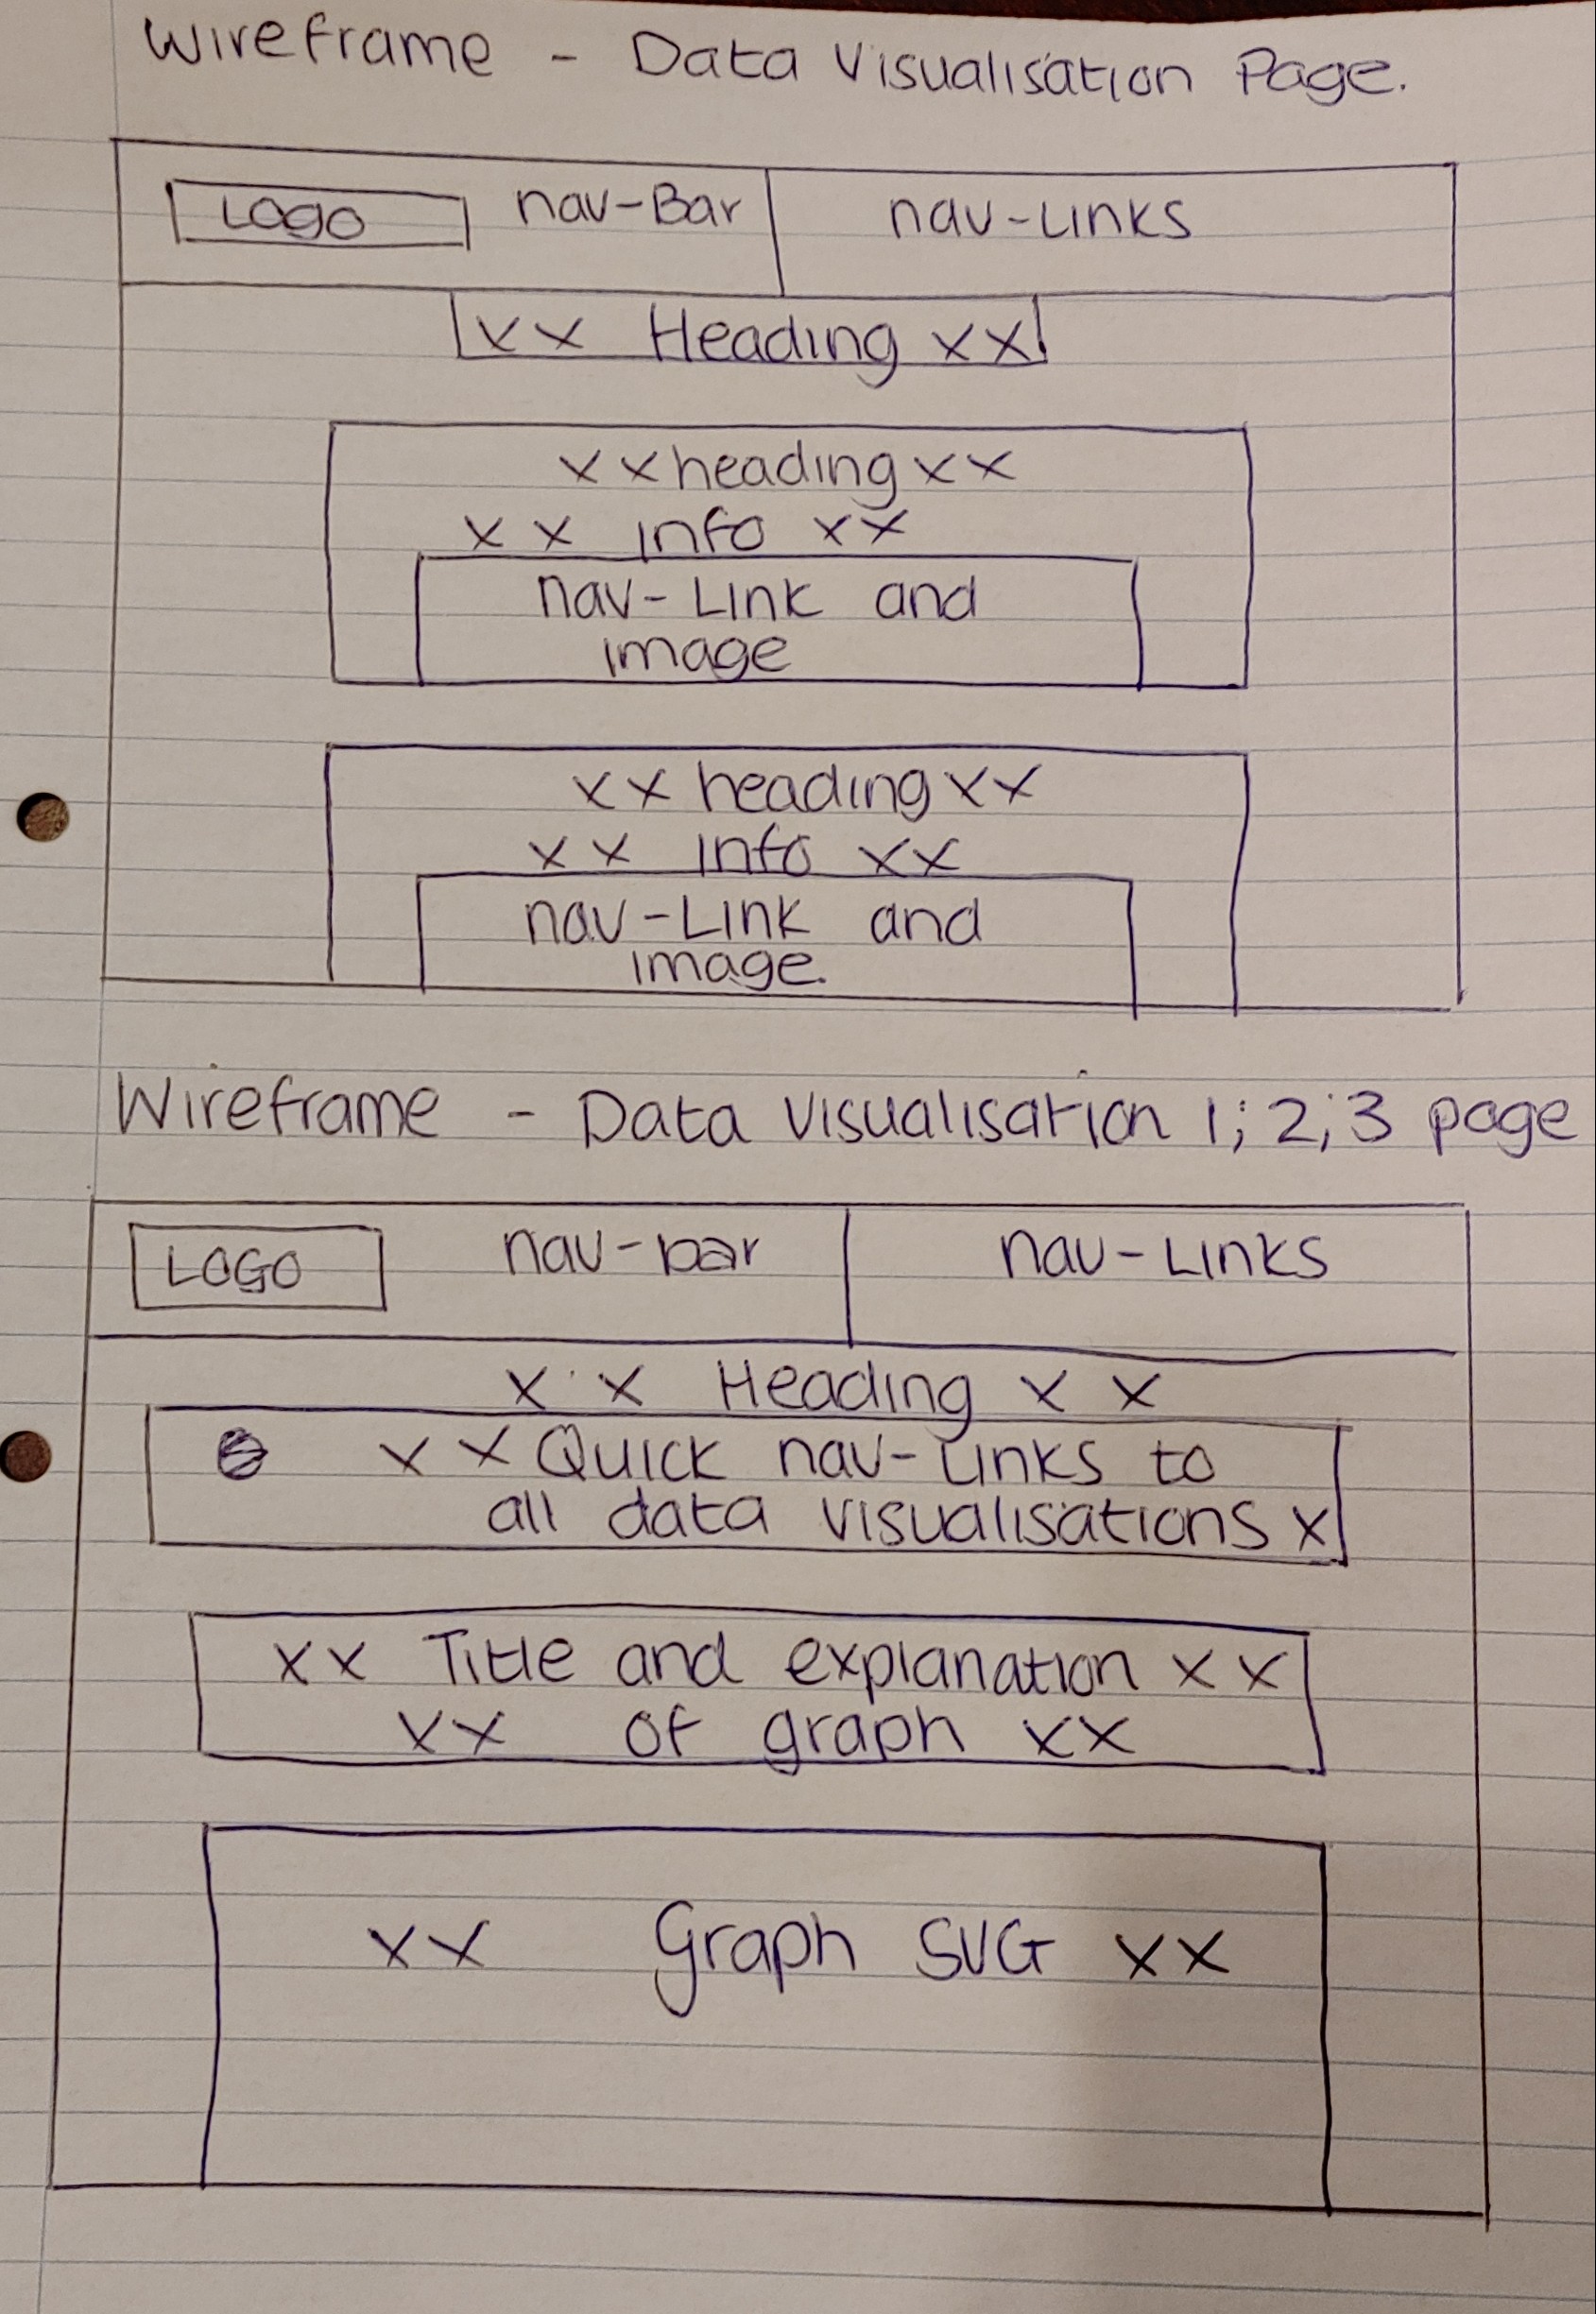 Wireframe - Data Visualisation Page.
LOGO nav-Bar nav-Links
xx Heading xx
x x heading x x
x x info xx
nav-Link and
image
x x heading x x
x x info xx
nav-Link and
image.
Wireframe - Data Visualisation 1; 2; 3 page
LOGO nav-bar nav-Links
x x Heading x x
x x Quick nav-Links to
all data visualisations x
xx Title and explanation x x
xx of graph xx
xx Graph SVG xx